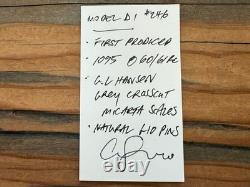 MODEL D1 #246
• FIRST PRODUCED
• 1095 @ 60/61RC
• G.L. HANSON
GREY CROSSCUT
MICARTA SCALES
• NATURAL G10 PINS